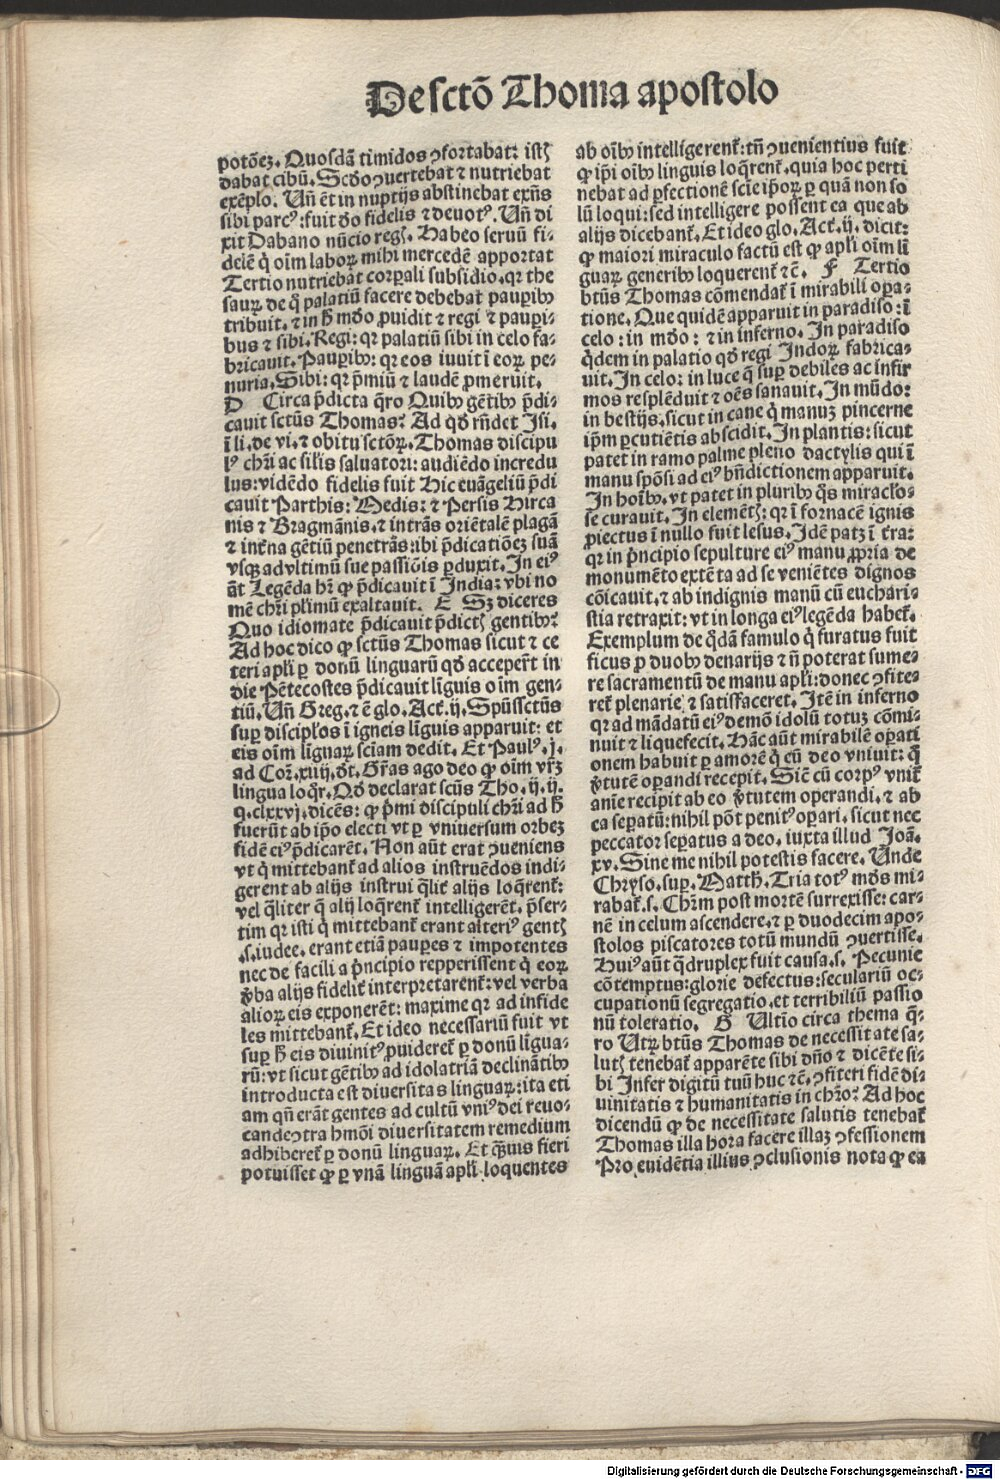 De sctō Thoma apostolo
potōeꝫ. Quosdā timidos ꝯfortabat: istꝭ
dabat cibū. Scḋo ꝯuertebat ⁊ nutriebat
exēplo. Uñ ēt in nuptijs abstinebat exñs
sibi parcꝰ: fuit ḋo fidelis ⁊ deuotꝰ. Uñ di
xit Dabano nūcio regꝭ. Habeo seruū fi⸗
delē q̇ oīm laboꝝ mihi mercedē apportat
Tertio nutriebat corꝑali subsidio. qꝛ the
sauꝝ de q̇ palatiū facere debebat pauꝑibꝰ
tribuit. ⁊ in ħ mḋo ꝓuidit ⁊ regi ⁊ pauꝑi⸗
bus ⁊ sibi. Regi: qꝛ palatiū sibi in celo fa⸗
bricauit. Pauꝑibꝰ: qꝛ eos iuuit ī eoꝝ pe⸗
nuria. Sibi: qꝛ p̄miū ⁊ laudē ꝓmeruit.
D Circa p̄dicta q̄ro Quibꝰ gētibꝰ p̄di⸗
cauit sctūs Thomas? Ad qḋ rñdet Isi.
ī li. de vi. ⁊ obitu sctōꝝ. Thomas discipu
lꝰ chr̄i ac sil̄is saluatori: audiēdo incredu
lus: vidēdo fidelis fuit Hic euāgeliū p̄di
cauit Parthis: Medis: ⁊ Persis Hirca
nis ⁊ Bragmānis. ⁊ intrās oriētalē plagā
⁊ int̄na gētiū penetrās: ibi p̄dicatiōeꝫ suā
vsqꝫ ad vltimū sue passiōis ꝑduxit. In eiꝰ
āt Legēda hꝛ ꝙ p̄dicauit ī India: vbi no
mē chr̄i pl̄imū exaltauit. E Sꝫ diceres
Quo idiomate p̄dicauit p̄dictꝭ gentibꝰ?
Ad hoc dico ꝙ sctūs Thomas sicut ⁊ ce
teri apl̄i ꝑ donū linguarū qḋ acceper̄t in
die Pētecostes p̄dicauit līguis oīm gen⸗
tiū. Uñ Greg. ⁊ ē glo. Act. ij. Spūssctūs
suꝑ discipl̄os ī igneis līguis apparuit: et
eis oīm līguaꝝ sciam dedit. Et Paulꝰ. j.
ad Coꝛ. xiiij. ḋt. Gr̄as ago deo ꝙ oīm vr̄ꝫ
lingua loq̄r. Qḋ declarat scūs Tho. ij. ij.
q. clxxvj. dicēs: ꝙ p̄mi discipuli chr̄i ad ħ
fuerūt ab ip̄o electi vt ꝑ vniuersum orbeꝫ
fidē eiꝰ p̄dicarēt. Non aūt erat ꝯueniens
vt q̇ mittebant᷑ ad alios instruēdos indi⸗
gerent ab alijs instrui q̄lit᷑ alijs loq̄rent᷑:
vel q̄liter q̄ alij loq̄rent᷑ intelligerēt. p̄ser⸗
tim qꝛ isti q̇ mittebant᷑ erant alteriꝰ gentꝭ
.s. iudee. erant etiā pauꝑes ⁊ impotentes
nec de facili a p̄ncipio repperissent q̇ eoꝝ
ṽba alijs fidelit᷑ interpretarent᷑: vel verba
alioꝝ eis exponerēt: maxime qꝛ ad infide
les mittebant᷑. Et ideo necessariū fuit vt
suꝑ ħ eis diuinitꝰ ꝓuideret᷑ ꝑ donū līgua⸗
rū: vt sicut gētibꝰ ad idolatriā declinātibꝰ
introducta est diuersitas linguaꝝ: ita eti
am qñ erāt gentes ad cultū vniꝰ dei reuo⸗
cande ꝯtra hmōi diuersitatem remedium
adhiberet᷑ ꝑ donū linguaꝝ. Et q̄uis fieri
potuisset ꝙ ꝑ vnā linguā apl̄i loquentes
ab oībꝰ intelligerent᷑: tñ ꝯuenientius fuit
ꝙ ip̄i oībꝰ linguis loq̄rent᷑. quia hoc perti
nebat ad ꝑfectionē scie ip̄oꝝ ꝑ quā non so
lū loqui: sed intelligere possent ea que ab
alijs dicebant᷑. Et ideo glo. Act. ij. dicit:
ꝙ maiori miraculo factū est ꝙ apl̄i oīm lī
guaꝝ generibꝰ loquerent᷑ ⁊c̄. F Tertio
btūs Thomas cōmendat᷑ ī mirabili oꝑa⸗
tione. Que quidē apparuit in paradiso: ī
celo: in mḋo: ⁊ in inferno. In paradiso
q̇dem in palatio qḋ regi Indoꝝ fabrica⸗
uit. In celo: in luce q̄ suꝑ debiles ac infir
mos resplēduit ⁊ oēs sanauit. In mūdo:
in bestijs. sicut in cane q̇ manuꝫ pincerne
ip̄m ꝑcutiētis abscidit. In plantis: sicut
patet in ramo palme pleno dactylis qui ī
manu spōsi ad eiꝰ bn̄dictionem apparuit.
In hoībꝰ. vt patet in pluribꝰ q̄s miracl̄o⸗
se curauit. In elemētꝭ: qꝛ ī fornacē ignis
ꝓiectus ī nullo fuit lesus. Idē patꝫ ī t̄ra:
qꝛ in p̄ncipio sepulture eiꝰ manu ꝓpria de
monumēto extēta ad se veniētes dignos
cōicauit. ⁊ ab indignis manū cū euchari⸗
stia retraxit: vt in longa eiꝰ legēda habet᷑.
Exemplum de q̇dā famulo q̇ furatus fuit
ficus ꝓ duobꝰ denarijs ⁊ ñ poterat sume⸗
re sacramentū de manu apl̄i: donec ꝯfite⸗
ret᷑ plenarie ⁊ satisfaceret. Itē in inferno
qꝛ ad mādatū eiꝰ demō idolū totuꝫ cōmi⸗
nuit ⁊ liquefecit. Hāc aūt mirabilē oꝑati
onem habuit ꝑ amorē q̇ eū deo vniuit: q̄
ṽtutē oꝑandi recepit. Sic̄ cū corpꝰ vnit᷑
anīe recipit ab eo ṽtutem operandi. ⁊ ab
ea seꝑatū: nihil pōt penitꝰ oꝑari. sicut nec
peccator seꝑatus a deo. iuxta illud Joā.
xv. Sine me nihil potestis facere. Unde
Chryso. suꝑ. Matth. Tria totꝰ mḋs mi⸗
rabat᷑. s. Chr̄m post mortē surrexisse: car⸗
nē in celum ascendere. ⁊ ꝑ duodecim apo⸗
stolos piscatores totū mundū ꝯuertisse.
Huiꝰ aūt q̄druplex fuit causa. s. Pecunie
cōtemptus: glorie defectus: seculariū oc⸗
cupationū segregatio. et terribiliū passio
nū toleratio. G Ultīo circa thema q̄⸗
ro Utꝝ btūs Thomas de necessitate sa⸗
lutꝭ tenebat᷑ apparēte sibi dño ⁊ dicēte si⸗
bi Infer digitū tuū huc ⁊c̄. ꝯfiteri fidē di⸗
uinitatis ⁊ humanitatis in chr̄o? Ad hoc
dicendū ꝙ de necessitate salutis tenebat᷑
Thomas illa hora facere illaꝫ ꝯfessionem
Pro euidētia illius ꝯclusionis nota ꝙ ea
Digitalisierung gefördert durch die Deutsche Forschungsgemeinschaft - DFG